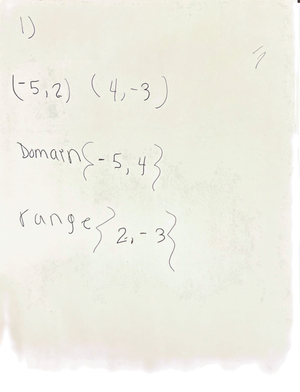 1)
(-5,2) (4,-3)
Domain{-5,4}
range}2,-3}